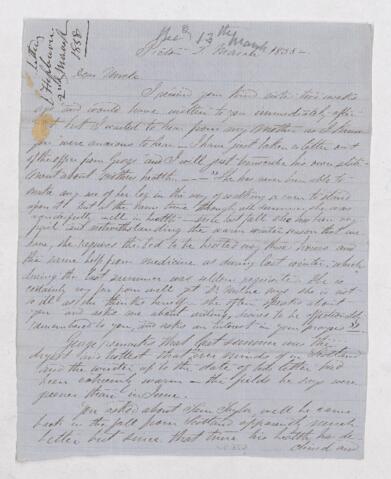 13th March
Pictou March 1858
Letter
2nd March
1858
Dear Uncle
I received your kind note two weeks
ago and would have written to you immediately after
but I wanted to hear from my Mother as I knew
you were anxious to hear — I have just taken a letter out
of the office from George and I will just transcribe his own state-
ment about Mothers health — "She has never been able to
make any use of her leg in the way of walking or even to stand
upon it. But at the same time through last summer she was
wonderfully well in health — since last fall she has been very
and notwithstanding the warm winter season that we
have, she requires the bed to be heated every three hours and
the same help from medicine as during last winter, which
during the last summer was seldom requisite. She is
certainly very far from well yet Dr says she is not
so ill as she thinks herself — she often speaks about
you and asks me about writing, desires to be affectionately
remembered to you, and asks an interest in your prayers
George remarks that last summer was the
dryest and hottest that ever minded of in Scotland
and the winter up to the date of his letter had
been extremely warm — the fields he says were
greener than in June.
You asked about Taylor, well he came
back in the fall from Scotland apparently much
better but since that time his health has de-
clined and